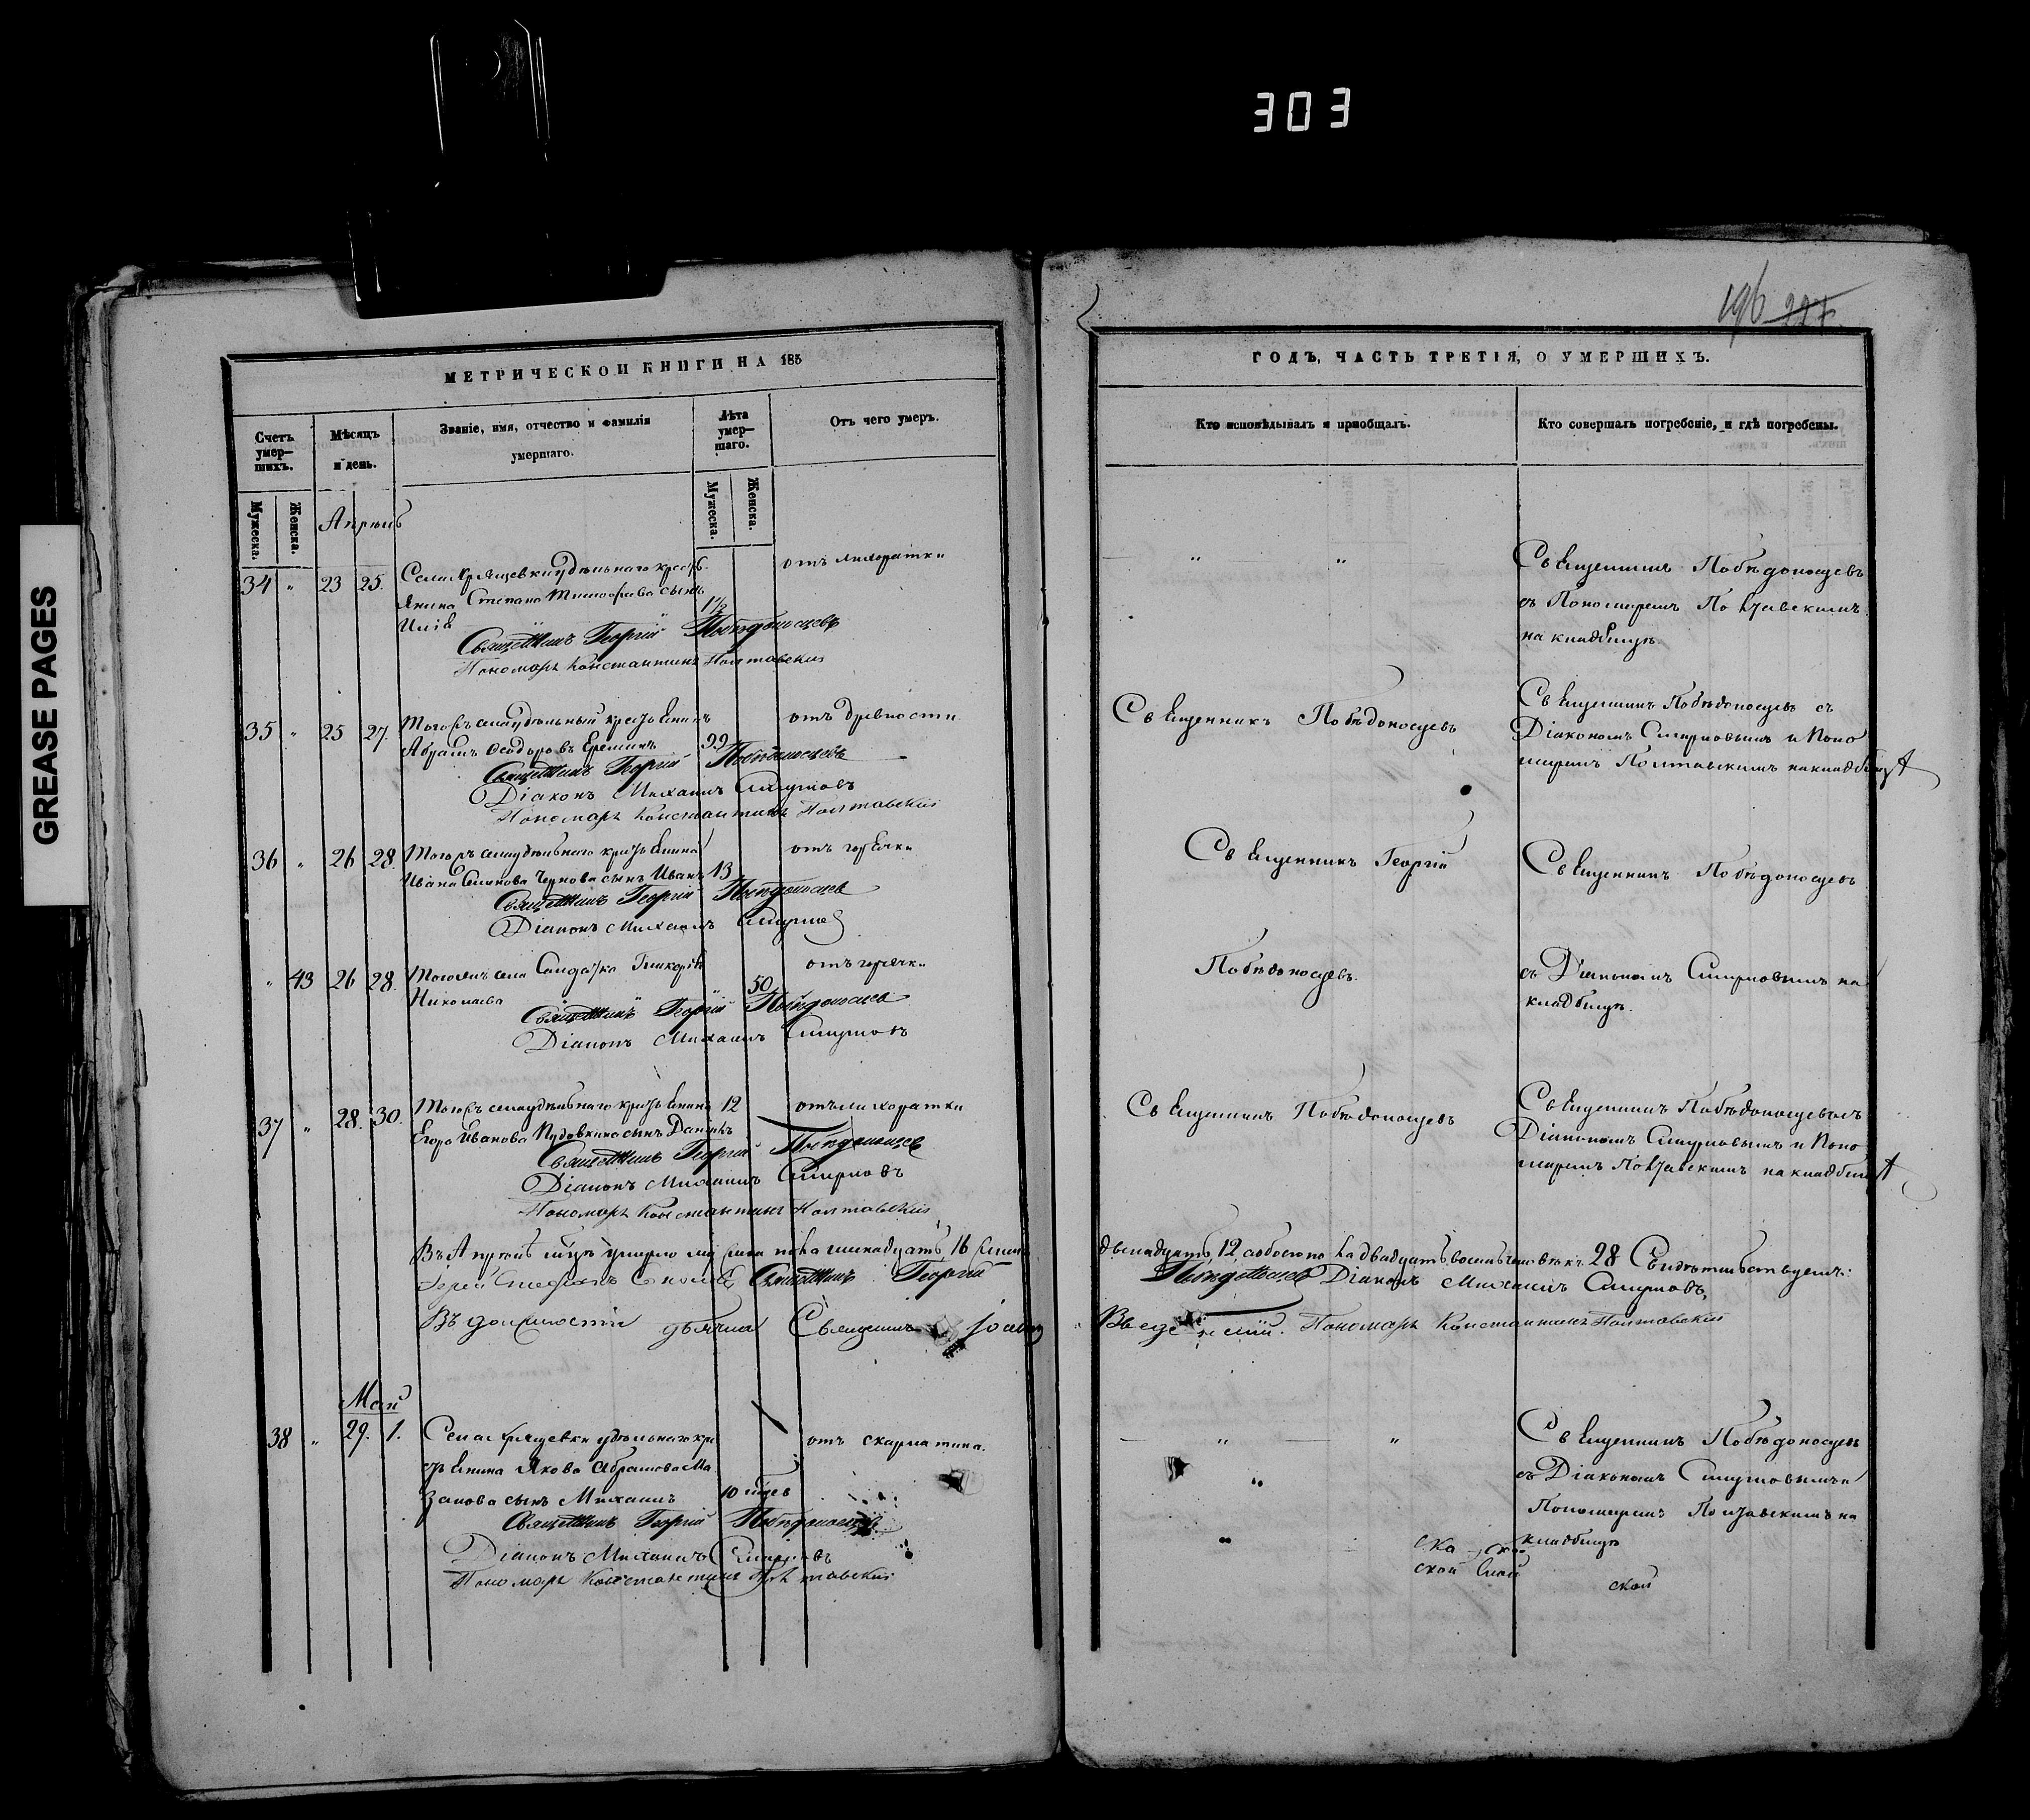 303
GREASE PAGES
196 227
МЕТРИЧЕСКОЙ КНИГИ НА 185
Счетъ умер-шихъ.
Мѣсяцъ и день.
Званіе, имя, отчество и фамилія умершаго.
Лѣта умер-шаго.
Отъ чего умеръ.
Мужеска.
Женска.
Мужеска.
Женска.
Апрѣль
34 " 23 25. Села Хрящевки удѣльнаго кресть отъ лихоратки
янина Степана Тимофѣева сынъ
Илія 1½
Священникъ Георгій Побѣдоносцевъ
Пономарь Константинъ Полтавскій
35 " 25 27. Тогожъ села удѣльный крестьянинъ отъ древности
Абрамъ Ѳеодоровъ Ереминъ 99
Священникъ Георгій Побѣдоносцевъ
Діаконъ Михаилъ Смирновъ
Пономарь Константинъ Полтавскій
36 " 26 28. Тогожъ села удѣльнаго крестьянина отъ горячки
Ивана Чернова сынъ Иванъ 13
Священникъ Георгій Побѣдоносцевъ
Діаконъ Михаилъ Смирновъ
" 43 26 28. села Солдатка Гликерія отъ горячки
Николаева 50
Священникъ Георгій Побѣдоносцевъ
Діаконъ Михаилъ Смирновъ
37 " 28. 30. Тогожъ села удѣльнаго крестьянина 12 отъ лихоратки
Егора Иванова Пудовкина сынъ Даніилъ
Священникъ Георгій Побѣдоносцевъ
Діаконъ Михаилъ Смирновъ
Пономарь Константинъ Полтавскій
Въ Апрѣлѣ мцѣ умерло 16
Іерей Священникъ Георгій
Въ должности дьячка Священникъ
Май
38 " 29. 1. Села Хрящевки удѣльнаго кре отъ скарлатина.
стьянина Якова Абрамова Ма
занова сынъ Михаилъ 10 мцев
Священникъ Георгій Побѣдоносцевъ
Діаконъ Михаилъ Смирновъ
Пономарь Константинъ Полтавскій
ГОДЪ, ЧАСТЬ ТРЕТІЯ, О УМЕРШИХЪ.
Кто исповѣдывалъ и пріобщалъ.
Кто совершалъ погребеніе, и гдѣ погребены.
" " Священникъ Побѣдоносцевъ
съ Пономаремъ Полтавскимъ
на кладбищѣ.
Священникъ Побѣдоносцевъ
Священникъ Побѣдоносцевъ съ
Діакономъ Смирновымъ и Поно
маремъ Полтавскимъ на кладбищѣ
Священникъ Георгій
Священникъ Побѣдоносцевъ
Побѣдоносцевъ.
съ Діакономъ Смирновымъ на
кладбищѣ.
Священникъ Побѣдоносцевъ
Священникъ Побѣдоносцевъ съ
Діакономъ Смирновымъ и Поно
маремъ Полтавскимъ на кладбищѣ
двенадцать 12 двадцать восемь человѣкъ 28 Свидѣтельствуемъ:
Побѣдоносцевъ Діаконъ Михаилъ Смирновъ,
Пономарь Константинъ Полтавскій
" " Священникъ Побѣдоносцевъ
" съ Діакономъ Смирновымъ и
Пономаремъ Полтавскимъ на
" кладбищѣ
ска ско
ской
ской